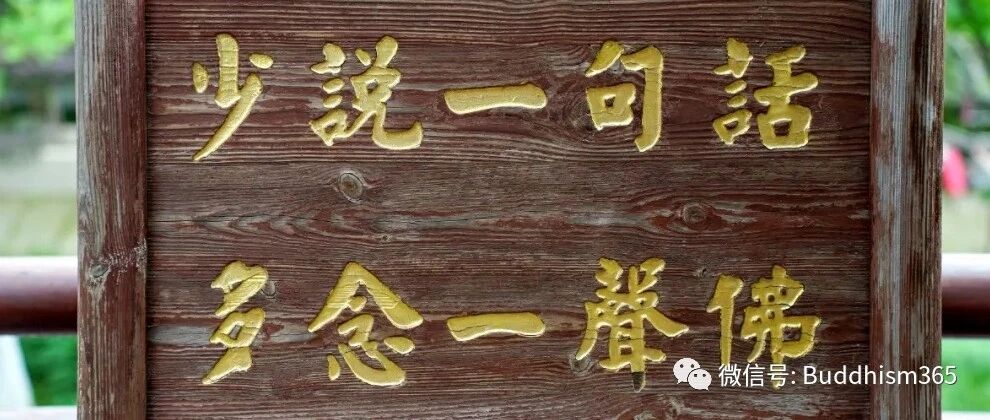 少説一句話
多念一聲佛
微信号: Buddhism365